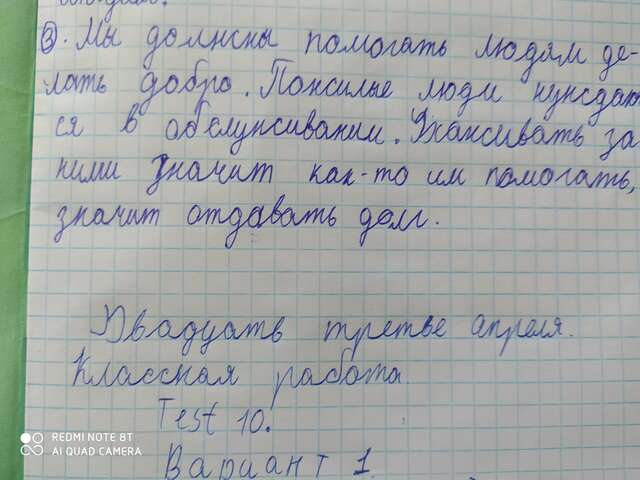 3. Мы должны помогать людям де-
лать добро. Пожилые люди нуждают
ся в обслуживании. Ухаживать за
ними значит как-то им помогать,
значит отдавать долг.
Двадцать третье апреля.
Классная работа.
Test 10.
Вариант 1.
REDMI NOTE 8T
AI QUAD CAMERA